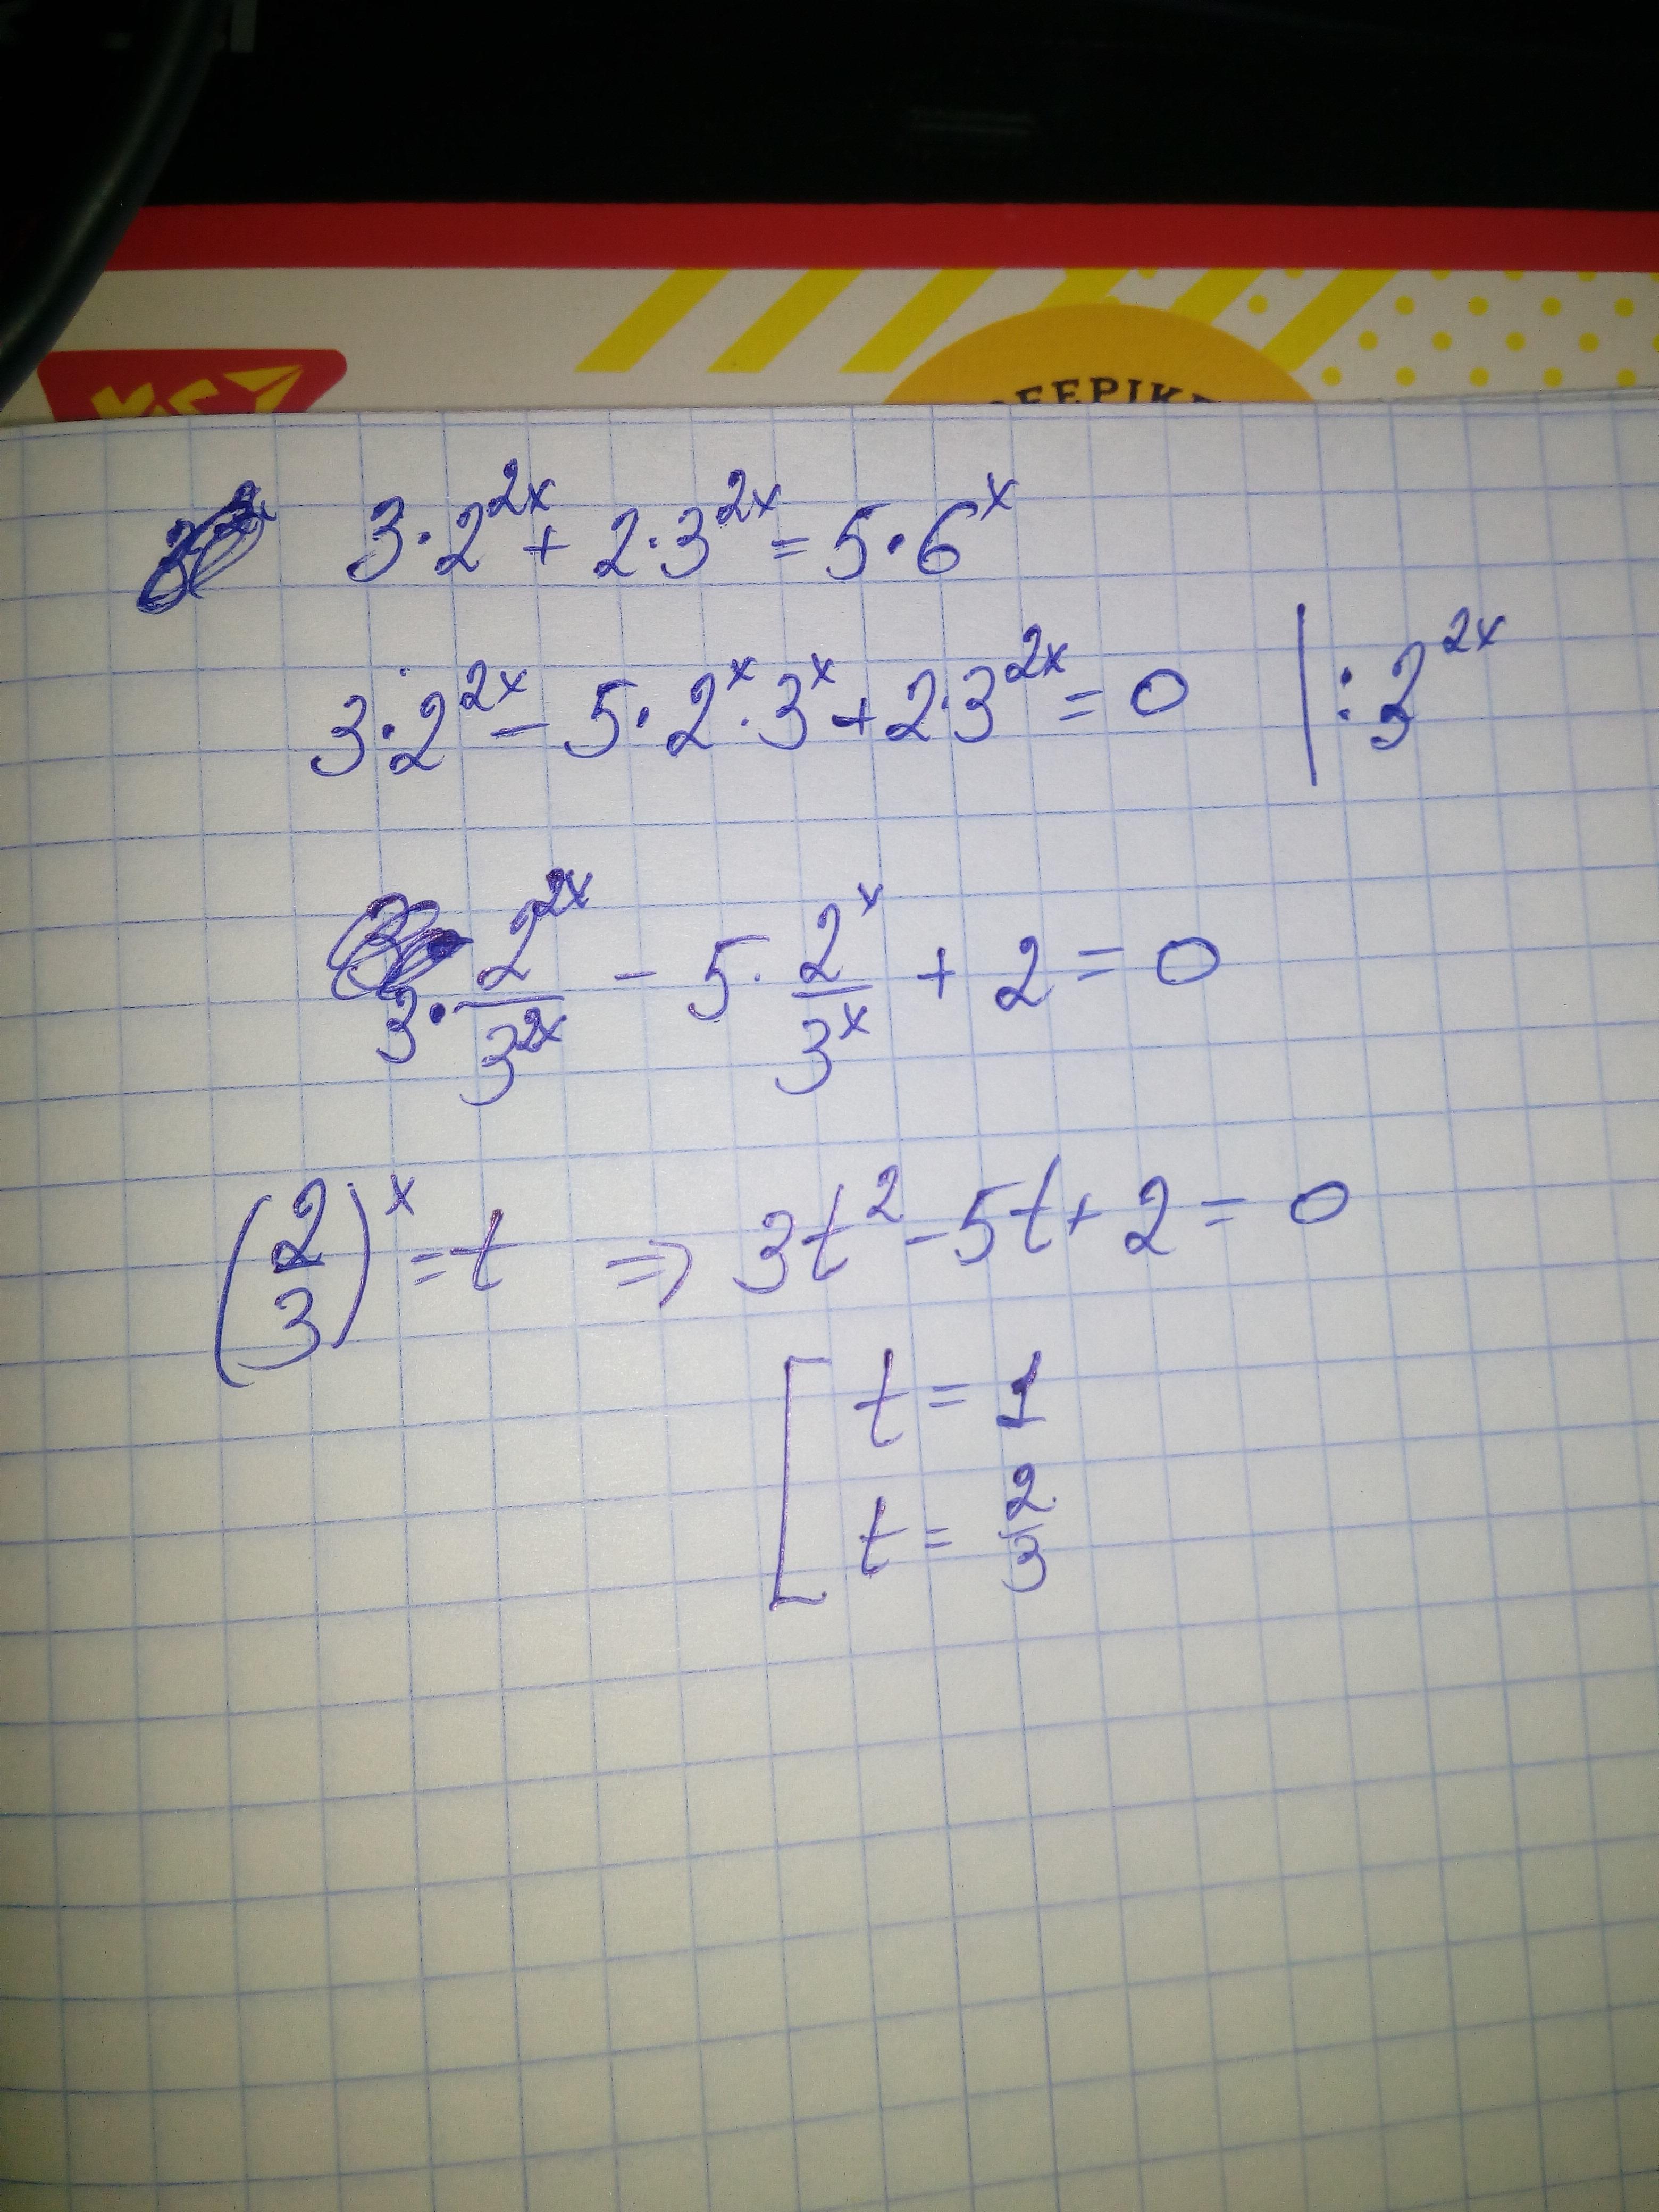 3·2^{2x} + 2·3^{2x} = 5·6^x
3·2^{2x} - 5·2^x·3^x + 2·3^{2x} = 0 | : 3^{2x}
3· 2^{2x}/3^{2x} - 5· 2^x/3^x + 2 = 0
(2/3)^x = t ⇒ 3t^2 - 5t + 2 = 0
[ t = 1
t = 2/3